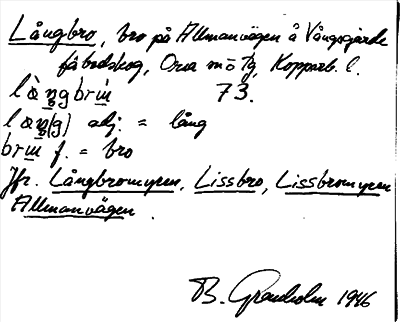 Långbro, bro på Allmanvägen å Vångsgärde
fäbodskog, Orsa m o Tg, Kopparb. l.
lὰŋgbrɯ́ 73.
lαŋ(g) adj. = lång
brɯ f. = bro
Jfr. Långbromyren, Lissbro, Lissbromyren
Allmanvägen.
B. Granholm 1946